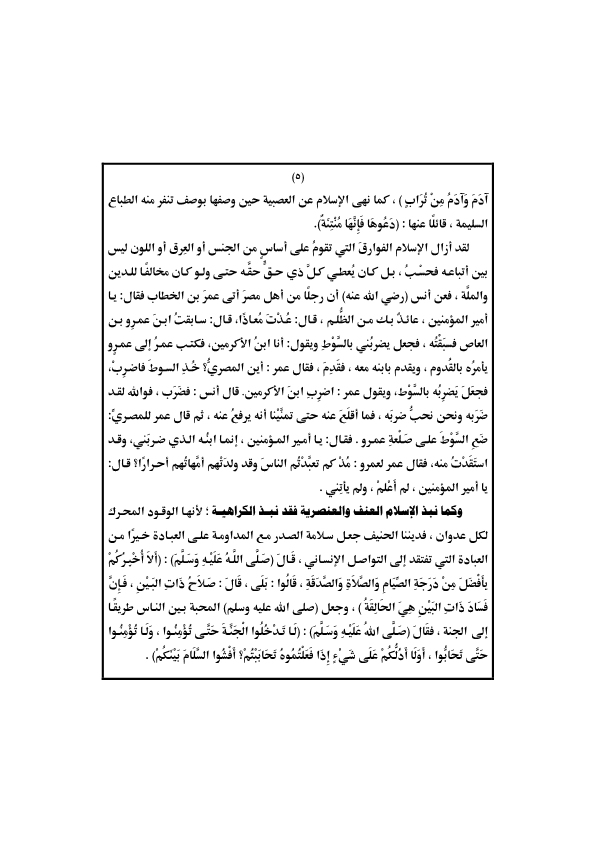 (٥)
آدَمَ وَآدَمُ مِنْ تُرَابٍ ) ، كما نهى الإسلام عن العصبية حين وصفها بوصف تنفر منه الطباع
السليمة ، قائلًا عنها : (دَعُوهَا فَإِنَّهَا مُنْتِنَةٌ).
لقد أزال الإسلام الفوارقَ التي تقومُ على أساسٍ من الجنس أو العِرق أو اللون ليس
بين أتباعه فحسْبُ ، بل كان يُعطي كلَّ ذي حقٍّ حقَّه حتى ولو كان مخالفًا للدين
والملَّة ، فعن أنس (رضي الله عنه) أن رجلًا من أهل مصرَ أتى عمرَ بن الخطاب فقال: يا
أمير المؤمنين ، عائذٌ بك من الظُّلم ، قال: عُذْتَ مُعاذًا، قال: سابقتُ ابنَ عمرِو بن
العاص فسبَقْتُه ، فجعل يضربُني بالسَّوْطِ ويقول: أنا ابنُ الأكرمين، فكتب عمرُ إلى عمرٍو
يأمرُه بالقُدوم ، ويقدم بابنه معه ، فقَدِمَ ، فقال عمر : أين المصريُّ؟ خُذِ السوطَ فاضرِبْ،
فجعَلَ يَضرِبُه بالسَّوْط، ويقول عمر : اضرِبِ ابنَ الأكرمين. قال أنس : فضَرَب ، فوالله لقد
ضَرَبه ونحن نحبُّ ضربَه ، فما أقلَعَ عنه حتى تمنَّيْنا أنه يرفعُ عنه ، ثم قال عمر للمصريِّ:
ضَعِ السَّوْطَ على صَلْعةِ عمرو . فقال: يا أمير المؤمنين ، إنما ابنُه الذي ضربَني، وقد
استَقَدْتُ منه، فقال عمر لعمرو : مُذْ كم تعبَّدْتُم الناسَ وقد ولدَتْهم أمَّهاتُهم أحرارًا؟ قال:
يا أمير المؤمنين ، لم أعْلمْ ، ولم يأتِني .
وكما نبذ الإسلام العنف والعنصرية فقد نبذ الكراهية ؛ لأنها الوقود المحرك
لكل عدوان ، فديننا الحنيف جعل سلامة الصدر مع المداومة على العبادة خيرًا من
العبادة التي تفتقد إلى التواصل الإنساني ، قَالَ (صَلَّى اللَّهُ عَلَيْهِ وَسَلَّمَ) : (أَلَا أُخْبِرُكُمْ
بِأَفْضَلَ مِنْ دَرَجَةِ الصِّيَامِ وَالصَّلَاةِ وَالصَّدَقَةِ ، قَالُوا : بَلَى ، قَالَ : صَلَاحُ ذَاتِ البَيْنِ ، فَإِنَّ
فَسَادَ ذَاتِ البَيْنِ هِيَ الحَالِقَةُ ) ، وجعل (صلى الله عليه وسلم) المحبة بين الناس طريقًا
إلى الجنة ، فقَالَ (صَلَّى اللهُ عَلَيْهِ وَسَلَّمَ) : (لَا تَدْخُلُوا الْجَنَّةَ حَتَّى تُؤْمِنُوا ، وَلَا تُؤْمِنُوا
حَتَّى تَحَابُّوا ، أَوَلَا أَدُلُّكُمْ عَلَى شَيْءٍ إِذَا فَعَلْتُمُوهُ تَحَابَبْتُمْ؟ أَفْشُوا السَّلَامَ بَيْنَكُمْ) .